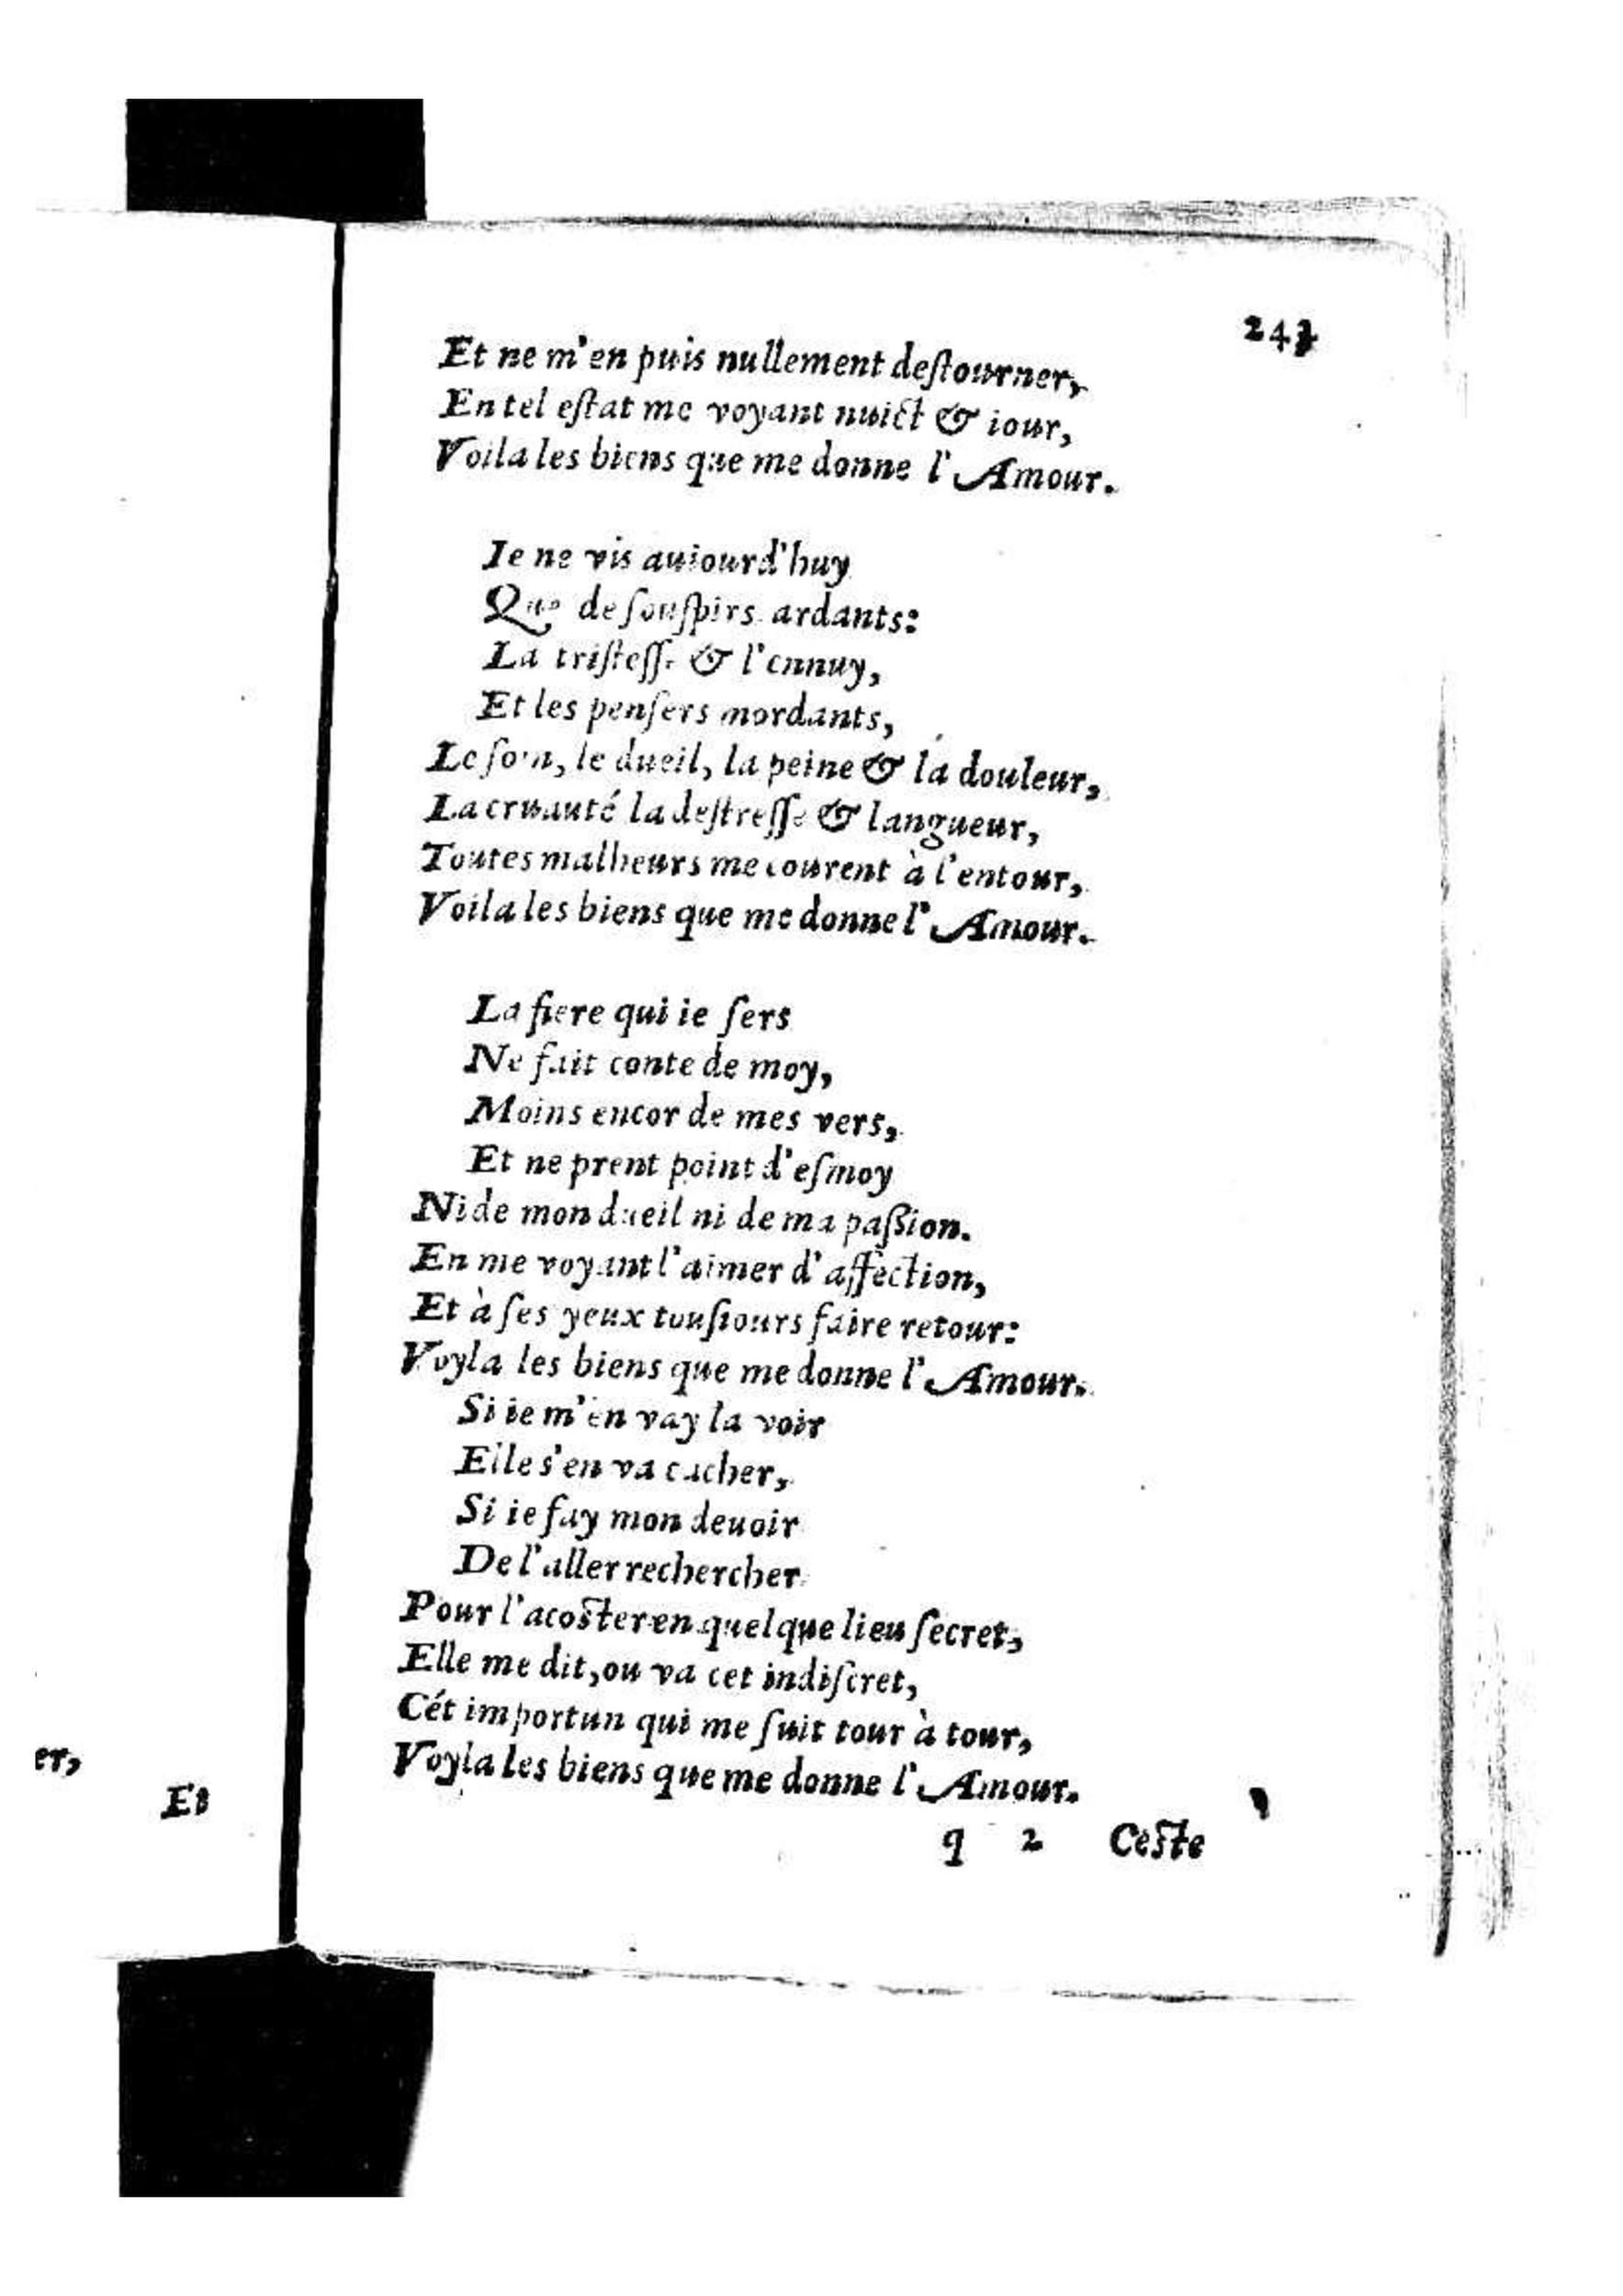 243
Et ne m'en puis nullement deſtourner,
En tel eſtat me voyant nuict & iour,
Voila les biens que me donne l'Amour.
Ie ne vis auiourd'huy
Que de ſouſpirs ardants:
La triſteſſe & l'ennuy,
Et les penſers mordants,
Le ſoin, le dueil, la peine & la douleur,
La cruauté la deſtreſſe & langueur,
Toutes malheurs me courent à l'entour,
Voila les biens que me donne l'Amour.
La fiere qui ie ſers
Ne fait conte de moy,
Moins encor de mes vers,
Et ne prent point d'eſmoy
Ni de mon dueil ni de ma paſſion.
En me voyant l'aimer d'affection,
Et à ſes yeux touſiours faire retour:
Voyla les biens que me donne l'Amour.
Si ie m'en vay la voir
Elle s'en va cacher,
Si ie fay mon deuoir
De l'aller rechercher
Pour l'acoſter en quelque lieu ſecret,
Elle me dit, ou va cet indiſcret,
Cét importun qui me ſuit tour à tour,
Voyla les biens que me donne l'Amour.
q 2 Ceſte
er,
Et